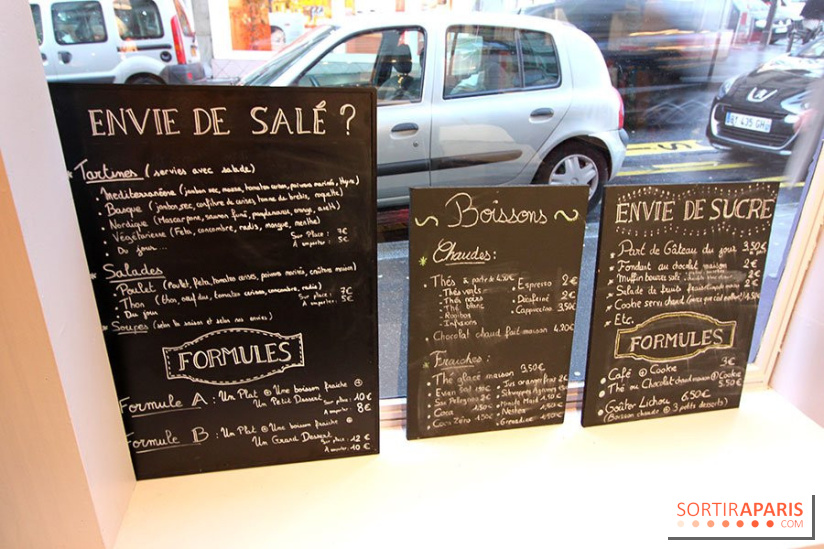 ENVIE DE SALÉ ?
Tartines (servies avec salade)
Méditerranéenne (jambon sec,
Basque (jambon sec, confiture de cerises, tomme de brebis, roquette)
Nordique (Mascarpone, saumon fumé, pamplemousse, orange, aneth)
Végétarienne (Feta, concombre, radis, mangue, menthe)
Du jour...
Sur Place : 7€
A emporter : 5€
Salades
Poulet (Poulet, Feta, tomates cerises, poivrons marinés,
Thon (thon, oeuf dur, tomates cerises, concombre, radis)
Du jour
Sur place : 7€
A emporter : 5€
Soupes (selon la saison et selon nos envies)
FORMULES
Formule A : Un Plat ⊕ Une boisson fraiche ⊕
Un Petit Dessert
Sur place : 10€
A emporter : 8€
Formule B : Un Plat ⊕ Une boisson fraiche ⊕
Un Grand Dessert
Sur place : 12€
A emporter : 10€
~ Boissons ~
Chaudes :
Thés à partir de
- Thés verts
- Thés noirs
- Thé blanc
- Rooïbos
- Infusions
Expresso 2€
Décaféiné 2€
Cappuccino 3,50€
Chocolat chaud fait maison 4,20€
Fraiches :
Thé glacé maison 3,50€
Evian
San Pelegrino
Coca 1,50€
Coca Zéro 1,50€
Jus orange frais 2€
Schweppes Agrumes
Minute Maid 1,50€
Nestea
Grenadine
ENVIE DE SUCRE
Part de Gâteau du jour 3,50€
Fondant au chocolat maison 2€
Muffin 2€
Salade de fruits 2€
Cookie
Etc.
FORMULES
Café ⊕ Cookie 3€
Thé ou Chocolat chaud maison ⊕ Cookie
5,50€
Goûter Lichou 6,50€
(Boisson chaude ⊕ 3 petits desserts)
SORTIRAPARIS
.COM